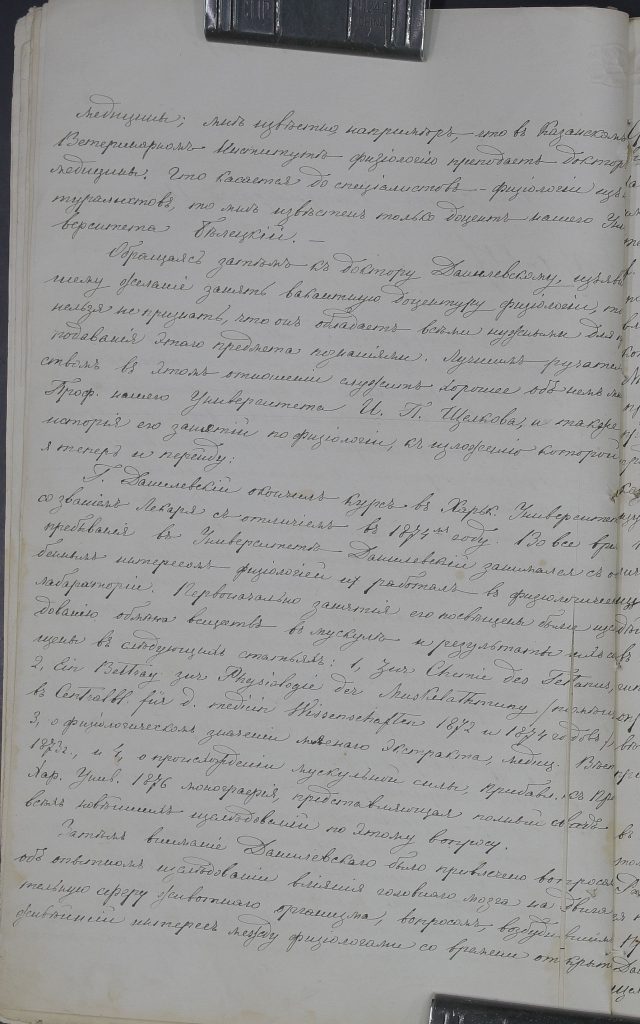 медицины; мнѣ извѣстно, напримѣръ, что въ Казанскомъ
Ветеринарномъ Институтѣ физіологію преподаетъ докторъ
медицины. Что касается до спеціалистовъ-физіологіи изъ
туралистовъ, то мнѣ извѣстенъ только доцентъ нашего Уни
верситета Бѣлецкій. —
Обращаясь затѣмъ къ доктору Данилевскому, изъяви
шему желаніе занять вакантную доцентуру физіологіи, то
нельзя не признать, что онъ обладаетъ всѣми нужными для п
подаванія этаго предмета познаніями. Лучшимъ ручатель
ствомъ въ этомъ отношеніи служитъ хорошее объ немъ
Проф. нашего Университета И. П. Щелкова, и также
исторія его занятій по физіологіи, къ изложенію которой
я теперь и перейду:
Г. Данилевскій окончилъ курсъ въ Харьк. Университетѣ
со званіемъ Лекаря съ отличіемъ въ 1874мъ году. Во все вре
пребыванія въ Университетѣ Данилевскій занимался съ осо
беннымъ интересомъ физіологіей и работалъ въ физіологической
лабораторіи. Первоначально занятія его посвящены были изслѣ
дованію обмѣна веществъ въ мускулѣ и результаты
щены въ слѣдующихъ статьяхъ: 1, Zur Chemie des Tetanus,
2, Ein Beitrag zur Physiologie der Muskelathmung /
въ Centralbl. für d. medicin Wissenschaften 1872 и 1874 годовъ/,
3, о физіологическомъ значеніи мяснаго экстракта, медиц. Вѣст
1873г., и 4, о происхожденіи мускульной силы, Прибавл. къ Про
Хар. Унив. 1876 монографія, представляющая полный сводъ
всѣхъ новѣйшихъ изслѣдованій по этому вопросу.
Затѣмъ вниманіе Данилевскаго было привлечено вопросомъ
объ опытномъ изслѣдованіи вліянія головнаго мозга на двига
тельную сферу животнаго организма, вопросомъ, возбудившимъ
живѣйшій интересъ между физіологами со времени открыт